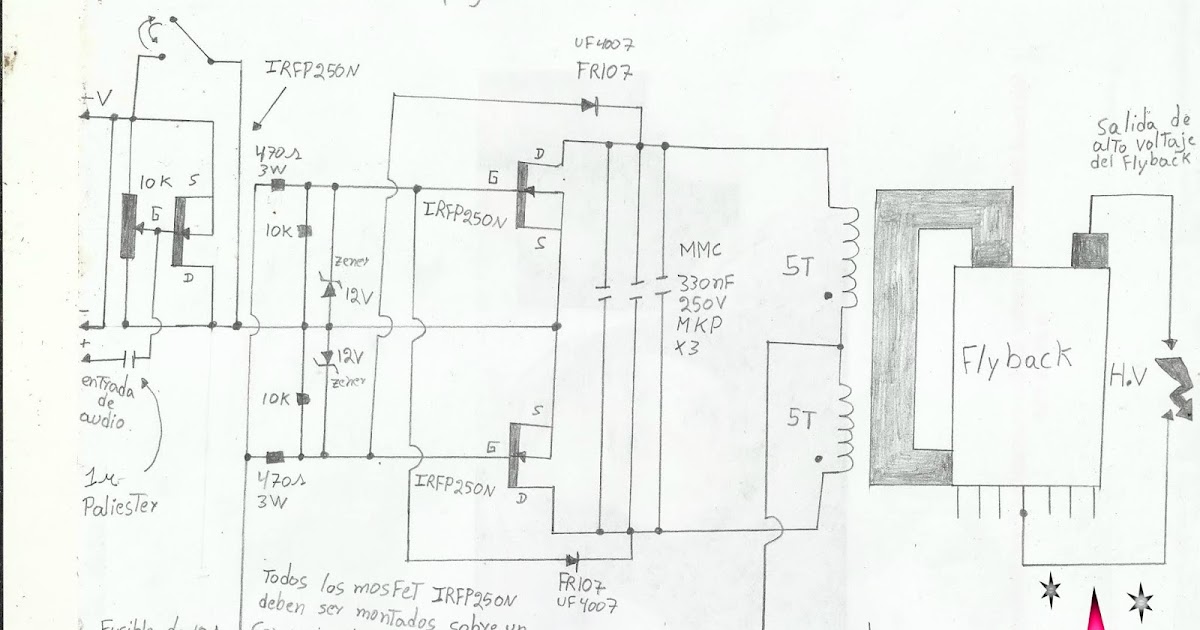 UF4007
FR107
IRFP250N
+V
470Ω
3W
10K
S
G
D
10K
zener
12V
G
D
IRFP250N
S
MMC
330nF
250V
MKP
X3
5T
Salida de
alto voltaje
del Flyback
-
+
entrada
de
audio
1µ
Paliester
12V
zener
10K
470Ω
3W
S
G
IRFP250N
D
5T
Flyback
H.V
FR107
UF4007
Todos los mosFeT IRFP250N
deben ser montados sobre un
Fusible de